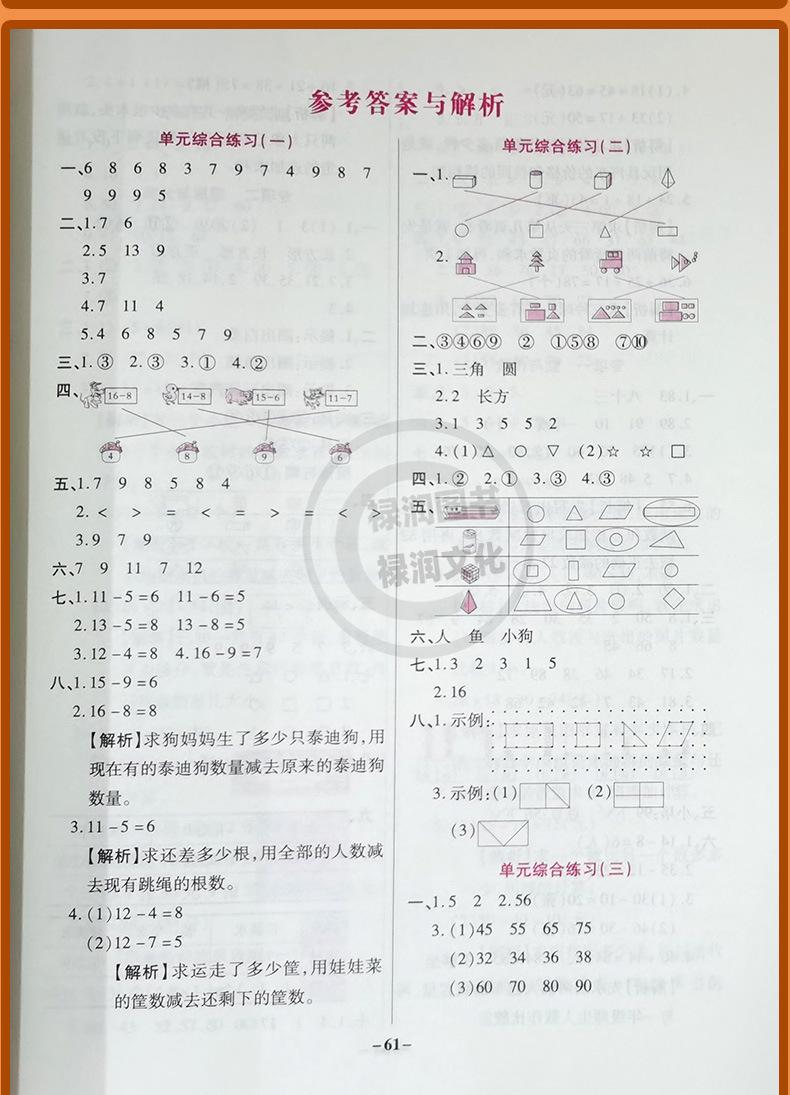 参考答案与解析
单元综合练习(一)
一、6 8 6 8 3 7 9 7 4 9 8 7
9 9 9 5
二、1.7 6
2.5 13 9
3.7
4.7 11 4
5.4 6 8 5 7 9
三、1.③ 2.③ 3.① 4.②
四、
16-8 14-8 15-6 11-7
4 8 9 6
五、1.7 9 8 5 8 4
2.< > = < = > = < >
3.9 7 9
六、7 9 11 7 12
七、1.11-5=6 11-6=5
2.13-5=8 13-8=5
3.12-4=8 4.16-9=7
八、1.15-9=6
2.16-8=8
【解析】求狗妈妈生了多少只泰迪狗,用
现在有的泰迪狗数量减去原来的泰迪狗
数量。
3.11-5=6
【解析】求还差多少根,用全部的人数减
去现有跳绳的根数。
4.(1)12-4=8
(2)12-7=5
【解析】求运走了多少筐,用娃娃菜
的筐数减去还剩下的筐数。
单元综合练习(二)
一、1.
2.
二、③④⑥⑨ ② ①⑤⑧ ⑦⑩
三、1.三角 圆
2.2 长方
3.1 3 5 5 2
4.(1)△ ○ ▽ (2)☆ ☆ □
四、1.② 2.① 3.③ 4.③
五、
六、人 鱼 小狗
七、1.3 2 3 1 5
2.16
八、1.示例:
3.示例:(1) (2)
(3)
单元综合练习(三)
一、1.5 2 2.56
3.(1)45 55 65 75
(2)32 34 36 38
(3)60 70 80 90
-61-
禄润图书
禄润文化